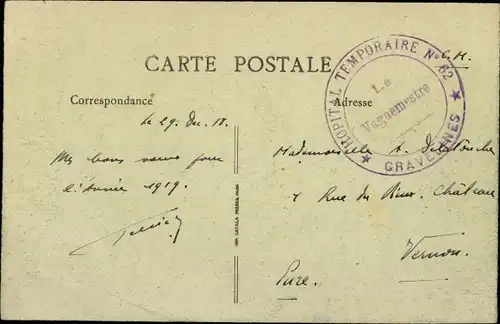 CARTE POSTALE
Correspondance
Adresse
HOPITAL TEMPORAIRE No 62
GRAVELINES
Le
Vaguemestre
le 29. Dec. 18.
Mes bons voeux pour
l'année 1919.
Mademoiselle A. Delatouche
1 Rue du Vieux Château
Vernon.
Eure.
IMP. CATALA FRERES, PARIS